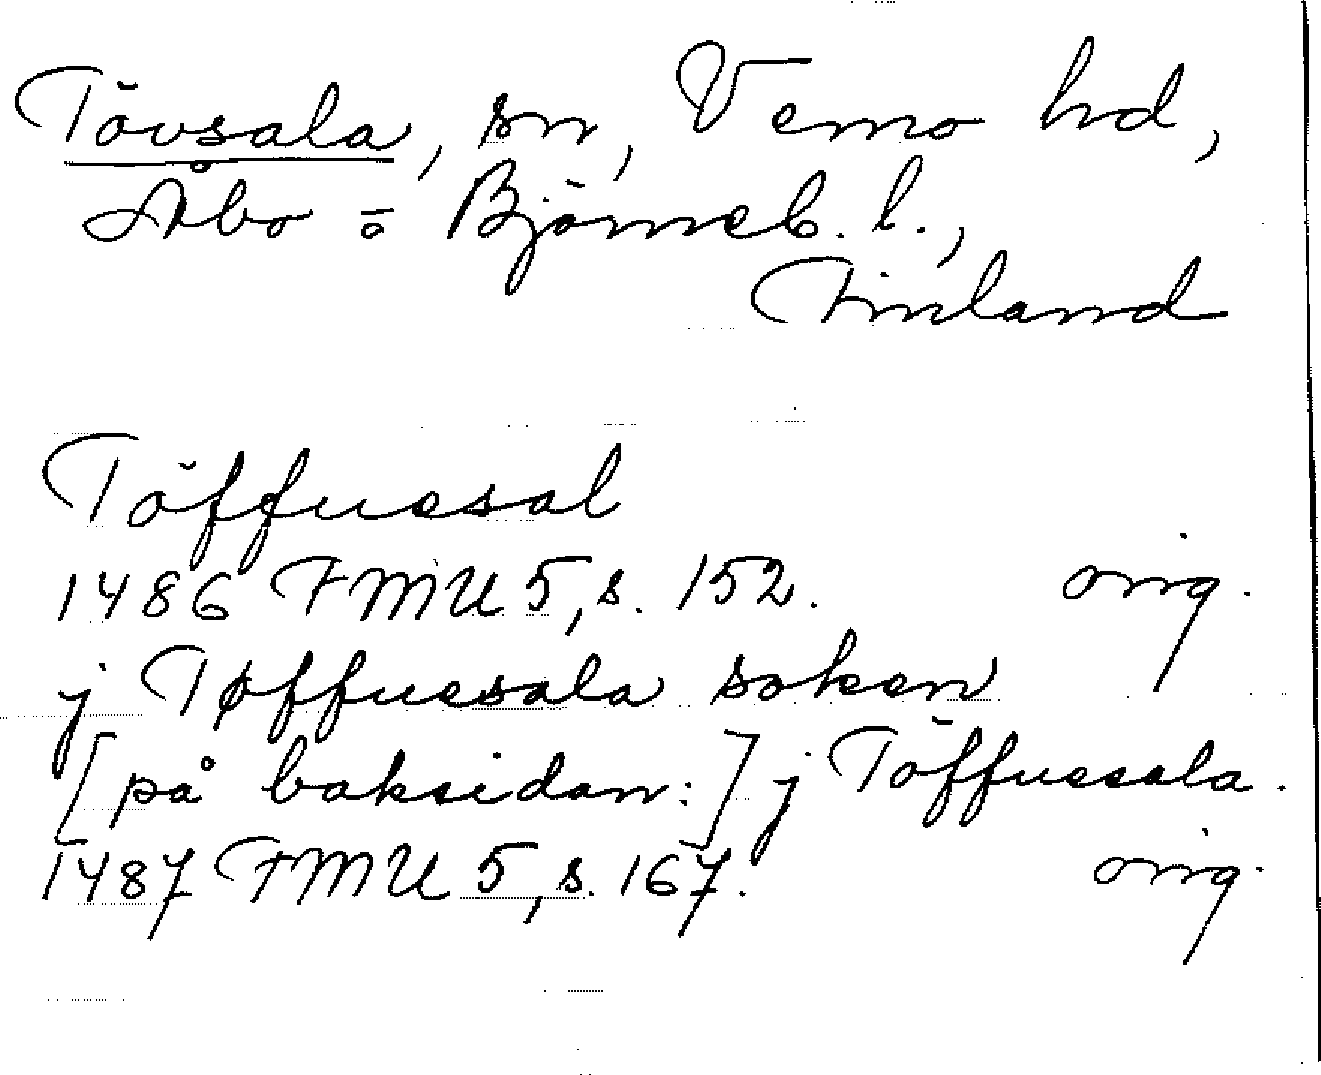 Tövsala, sn, Vemo hd,
Åbo o Björneb. l.,
Finland
Töffuesal
1486 FMU 5, s. 152. orig.
j Tøffuesala soken
[på baksidan:] j Töffuesala.
1487 FMU 5, s. 167. orig.